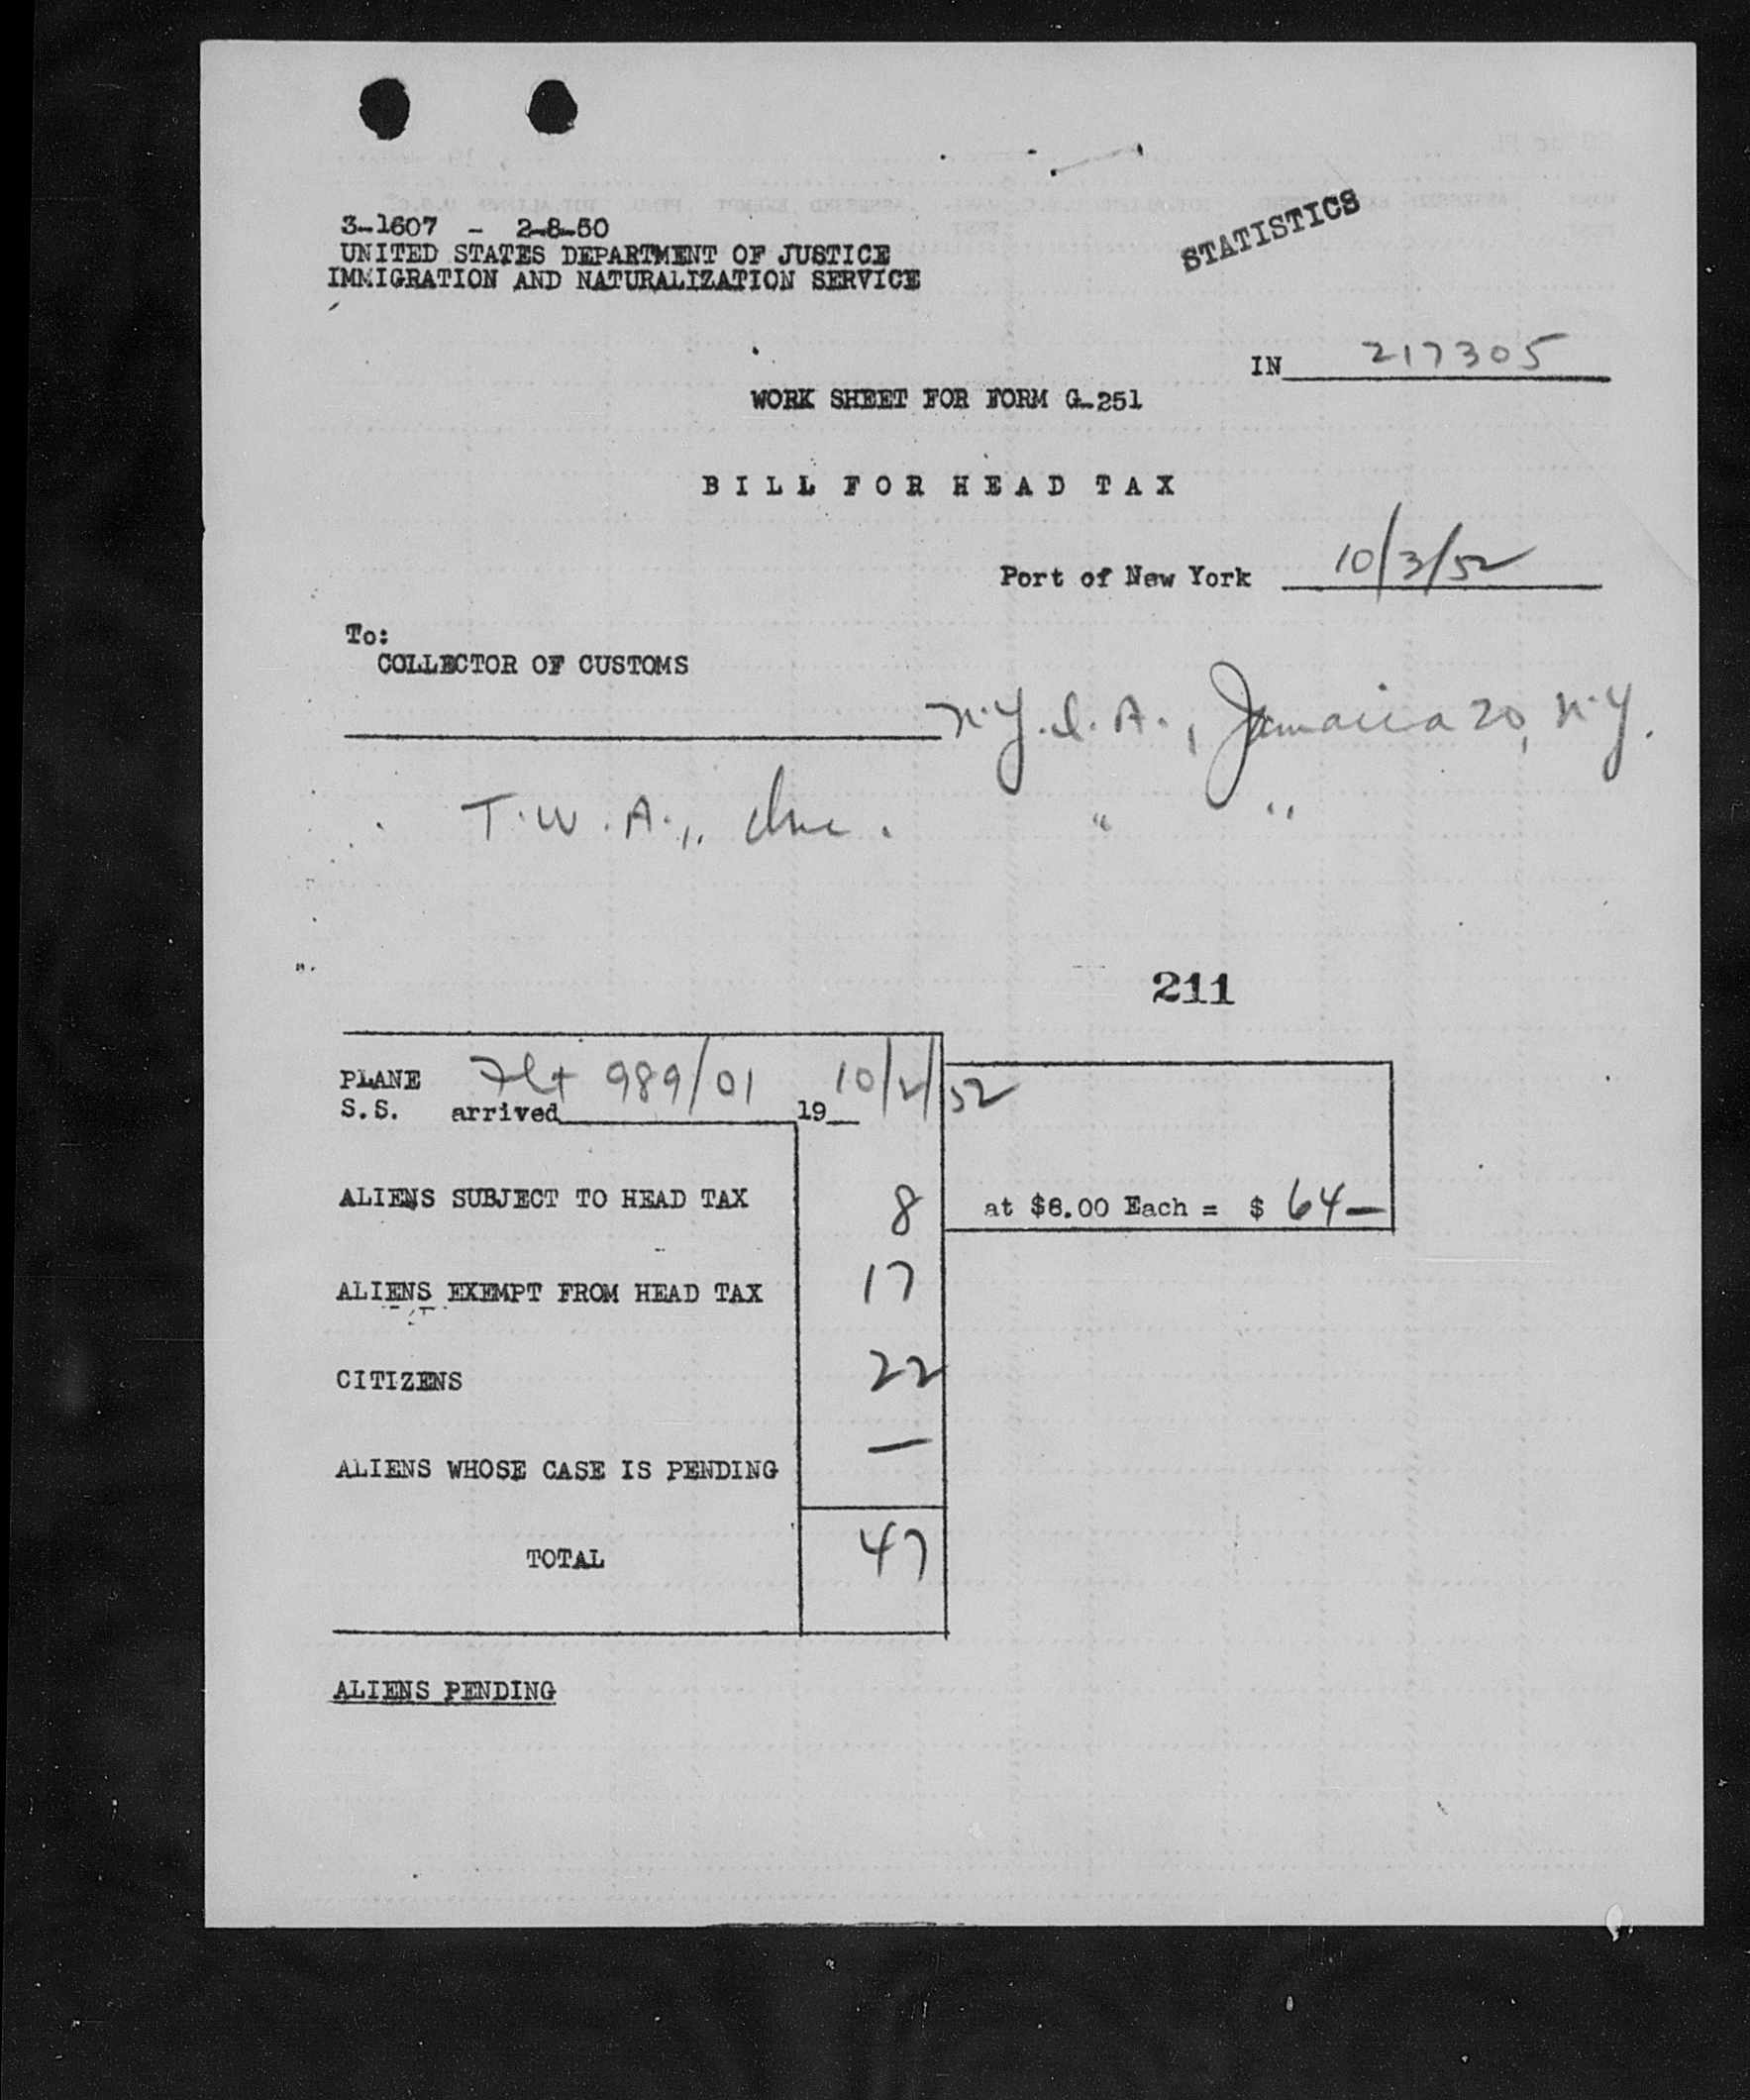 STATISTICS
3-1607 - 2-8-50
UNITED STATES DEPARTMENT OF JUSTICE
IMMIGRATION AND NATURALIZATION SERVICE
IN 217305
WORK SHEET FOR FORM G-251
BILL FOR HEAD TAX
Port of New York 10/3/52
To:
COLLECTOR OF CUSTOMS
N.Y.I.A., Jamaica 20, N.Y.
T.W.A., Inc. " "
211
PLANE Flt 989/01 10/2/52
S.S. arrived 19
ALIENS SUBJECT TO HEAD TAX 8 at $8.00 Each = $ 64—
ALIENS EXEMPT FROM HEAD TAX 17
CITIZENS 22
ALIENS WHOSE CASE IS PENDING —
TOTAL 47
ALIENS PENDING